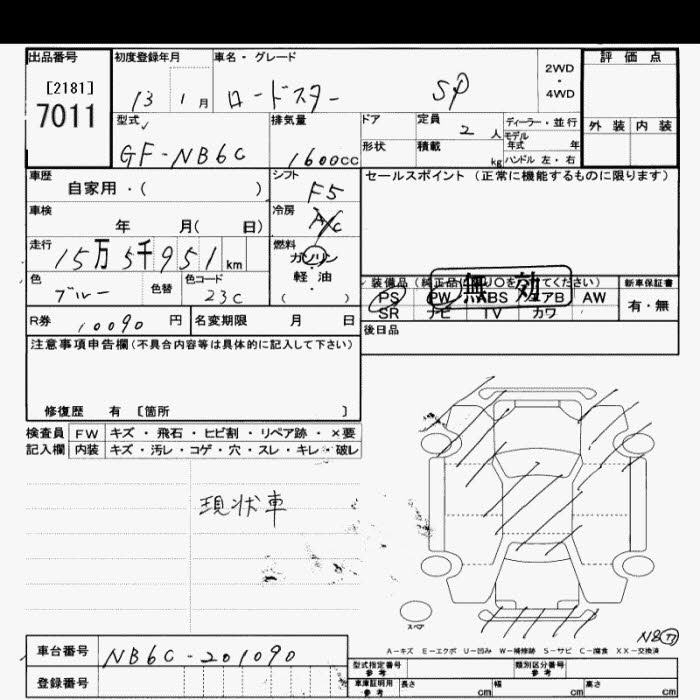 出品番号 初度登録年月 車名・グレード 評価点
[2181] 2WD
7011 13 1月 ロードスター SP ・
4WD
型式 排気量 ドア 定員 2人 ディーラー・並行 外装 内装
モデル年式 年
GF-NB6C 1600cc 形状 積載 kg ハンドル 左・右
車歴 シフト セールスポイント (正常に機能するものに限ります)
自家用・( ) F5
車検 冷房
年 月( 日) A/C
走行 燃料
15万5千951km ガソリン
・
色 色替 色コード 軽・油
ブルー 23C ( )
装備品 (純正品 〇を てください) 新車保証書
無効
PS PW ABS エアB AW 有・無
SR ナビ TV カワ
R券 10090円 名変期限 月 日 後日品
注意事項申告欄(不具合内容等は具体的に記入して下さい)
修復歴 有 [箇所 ]
検査員 FW キズ・飛石・ヒビ割・リペア跡・×要
記入欄 内装 キズ・汚レ・コゲ・穴・スレ・キレ・破レ
現状車
スペア
A-キズ E-エクボ U-凹み W-補修跡 S-サビ C-腐食 XX-交換済
車台番号 NB6C-201090
登録番号
型式指定番号 参考 類別区分番号 参考
車庫証明用 参考 長さ cm 幅 cm 高さ cm